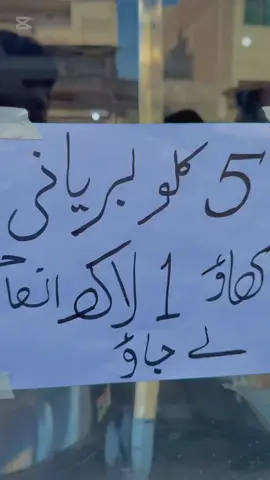 CapCut
5 کلو بریانی
کھاؤ 1 لاکھ انعام
لے جاؤ